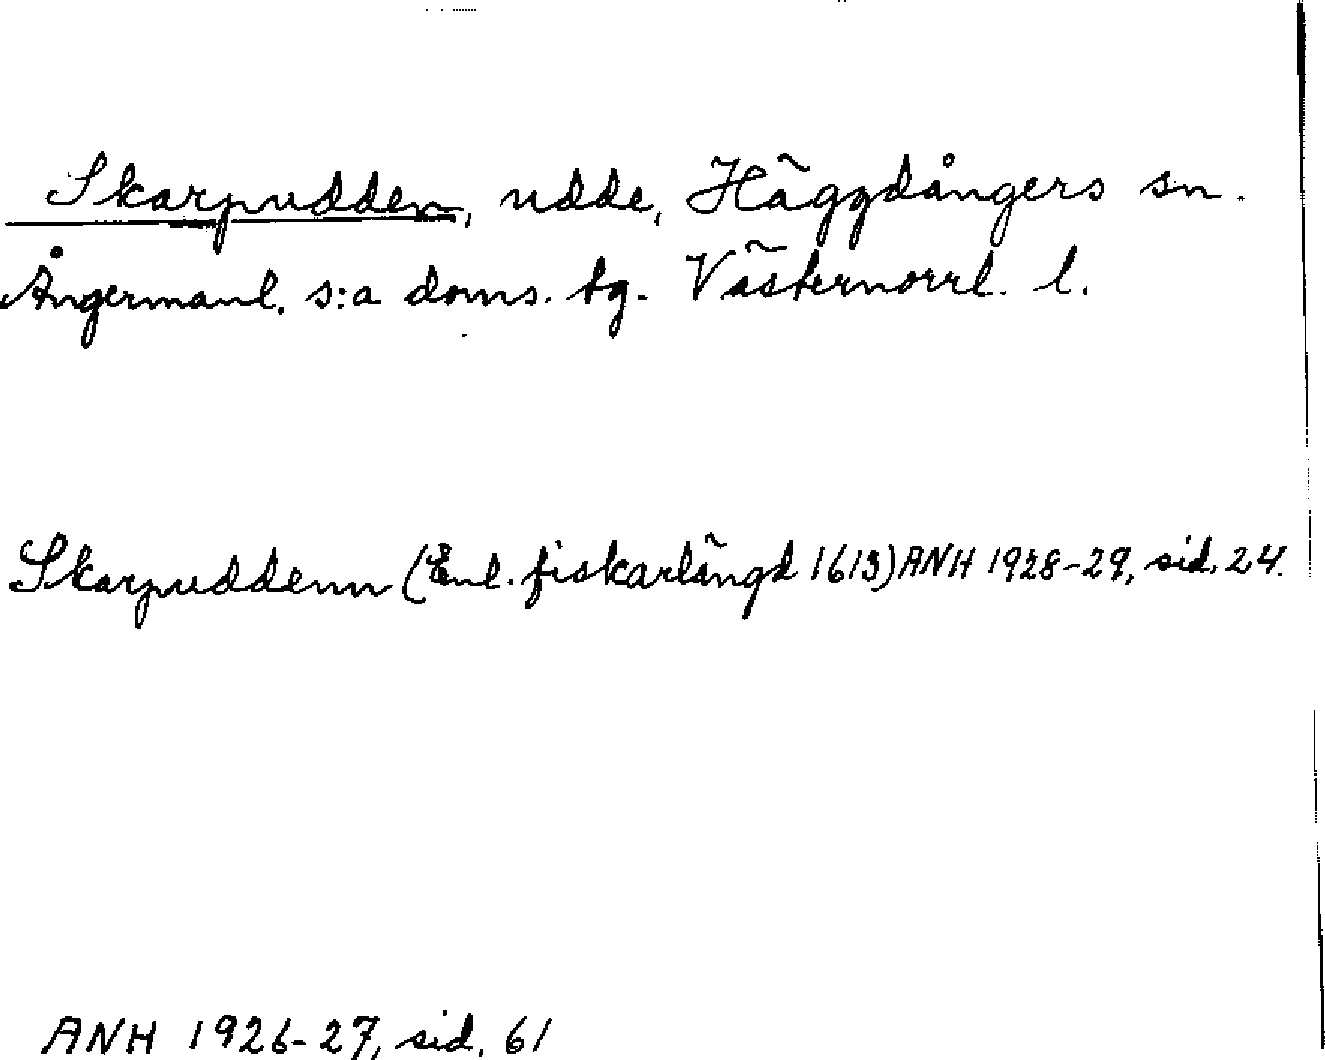 Skarpudden, udde, Häggdångers sn.
Ångermanl. s:a doms. tg. Västernorrl. l.
Skarpuddenn (Enl. fiskarlängd 1613) ANH 1928-29, sid. 24.
ANH 1926-27, sid. 61